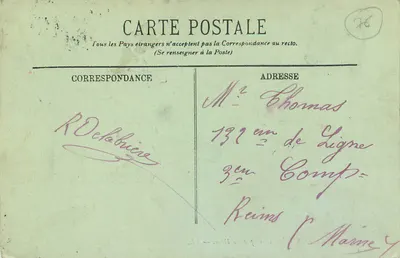 76
CARTE POSTALE
Tous les Pays étrangers n'acceptent pas la Correspondance au recto.
(Se renseigner à la Poste)
CORRESPONDANCE
R Delabrière
ADRESSE
Mr Thomas
132em de Ligne
3em Comp=
Reims
(Marne)